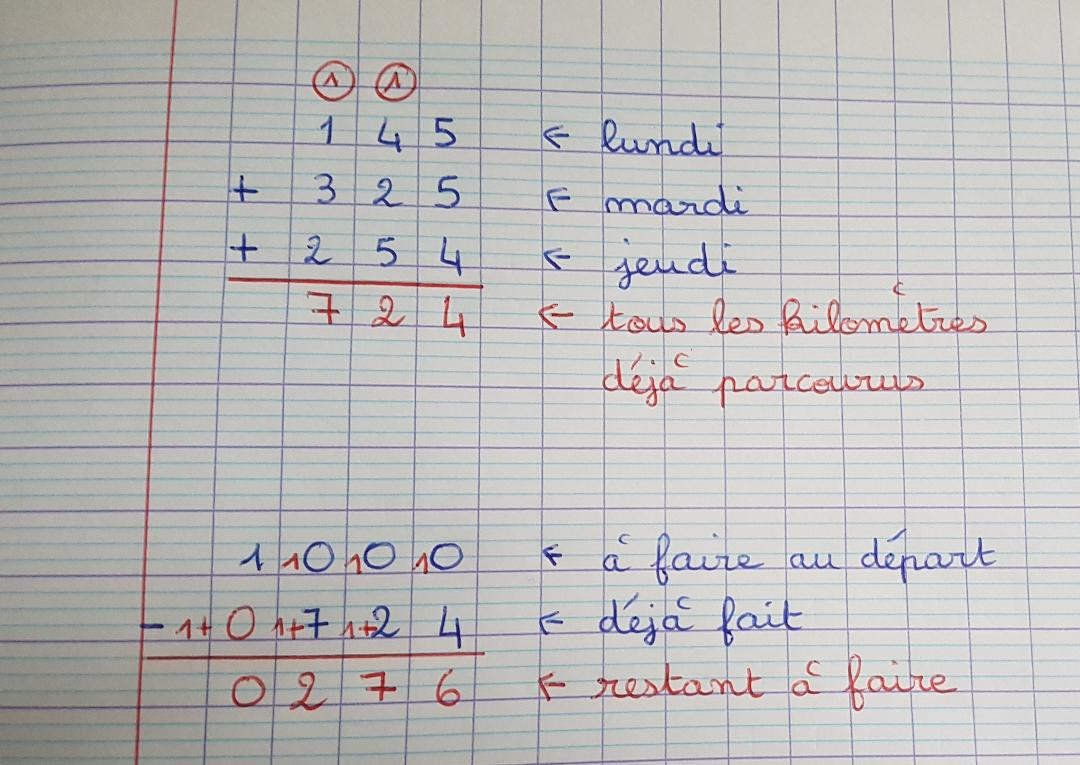 1 1
1 4 5 ← lundi
+ 3 2 5 ← mardi
+ 2 5 4 ← jeudi
7 2 4 ← tous les kilomètres
déjà parcourus
1 10 10 10 ← à faire au départ
- 1+ 0 1+7 1+2 4 ← déjà fait
0 2 7 6 ← restant à faire